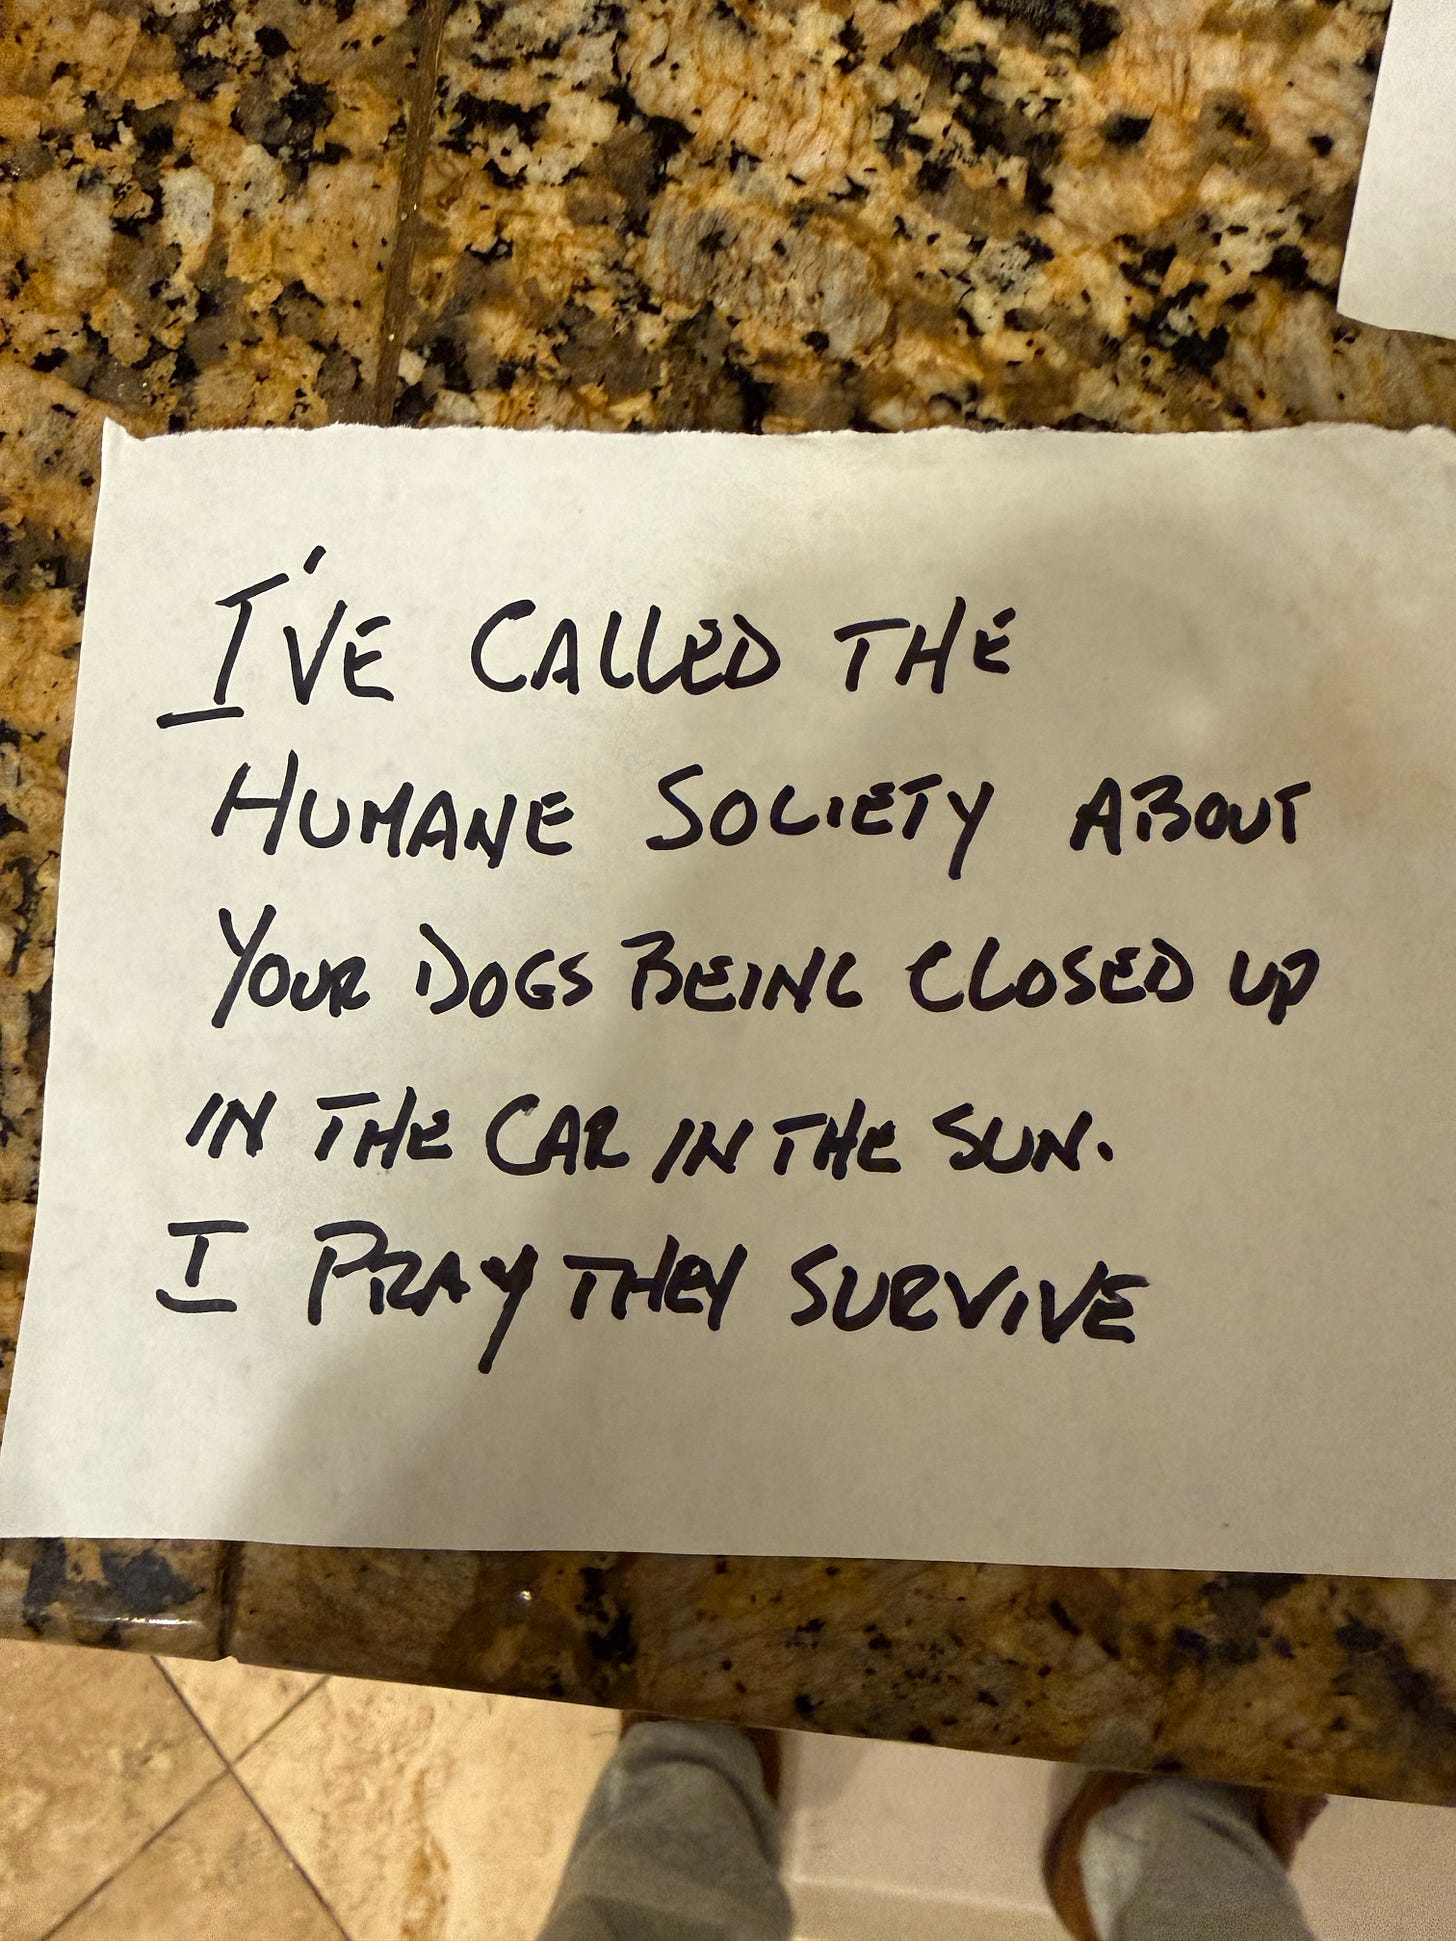 I'VE CALLED THE
HUMANE SOCIETY ABOUT
YOUR DOGS BEING CLOSED UP
IN THE CAR IN THE SUN.
I PRAY THEY SURVIVE